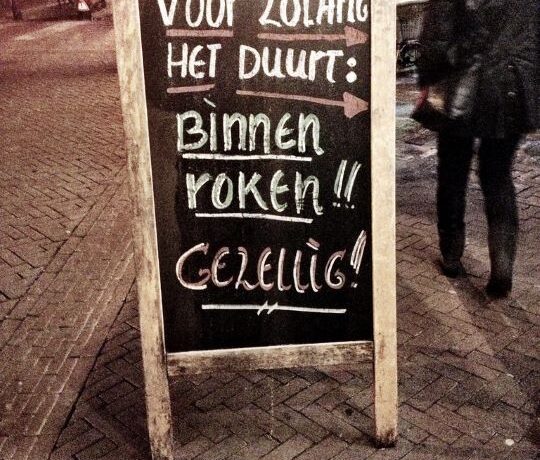 VOOR ZOLANG
HET DUURT:
BINNEN
ROKEN!!
GEZELLIG!